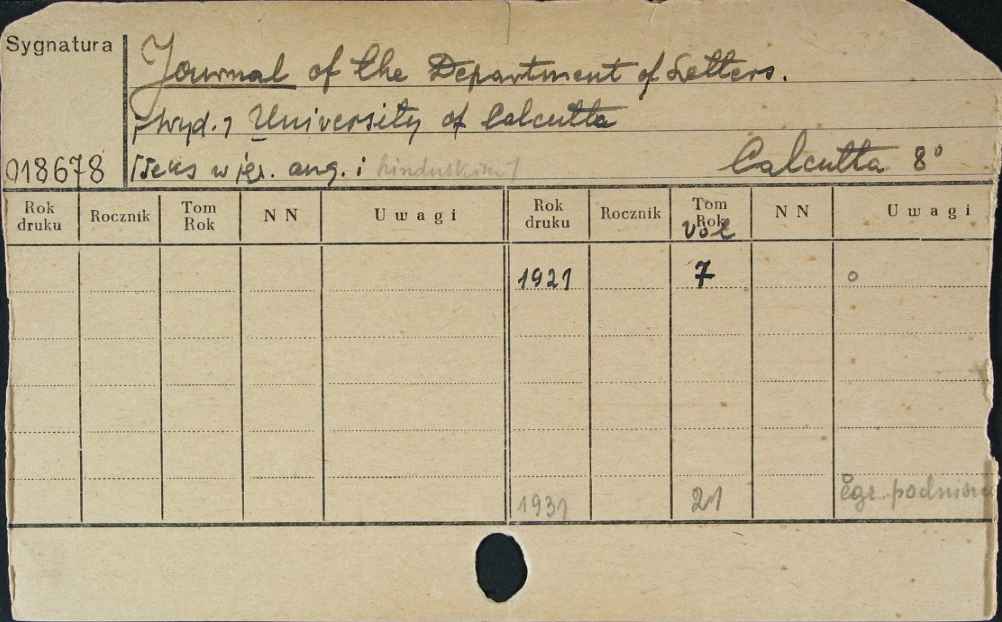 Sygnatura
Journal of the Department of Letters.
[wyd.] University of Calcutta
018678 [Teks w jęz. ang. i hinduskim] Calcutta 8°
Rok druku Rocznik Tom Rok N N Uwagi Rok druku Rocznik Tom Rok vol N N Uwagi
1921 7 o
1931 21 Egz.